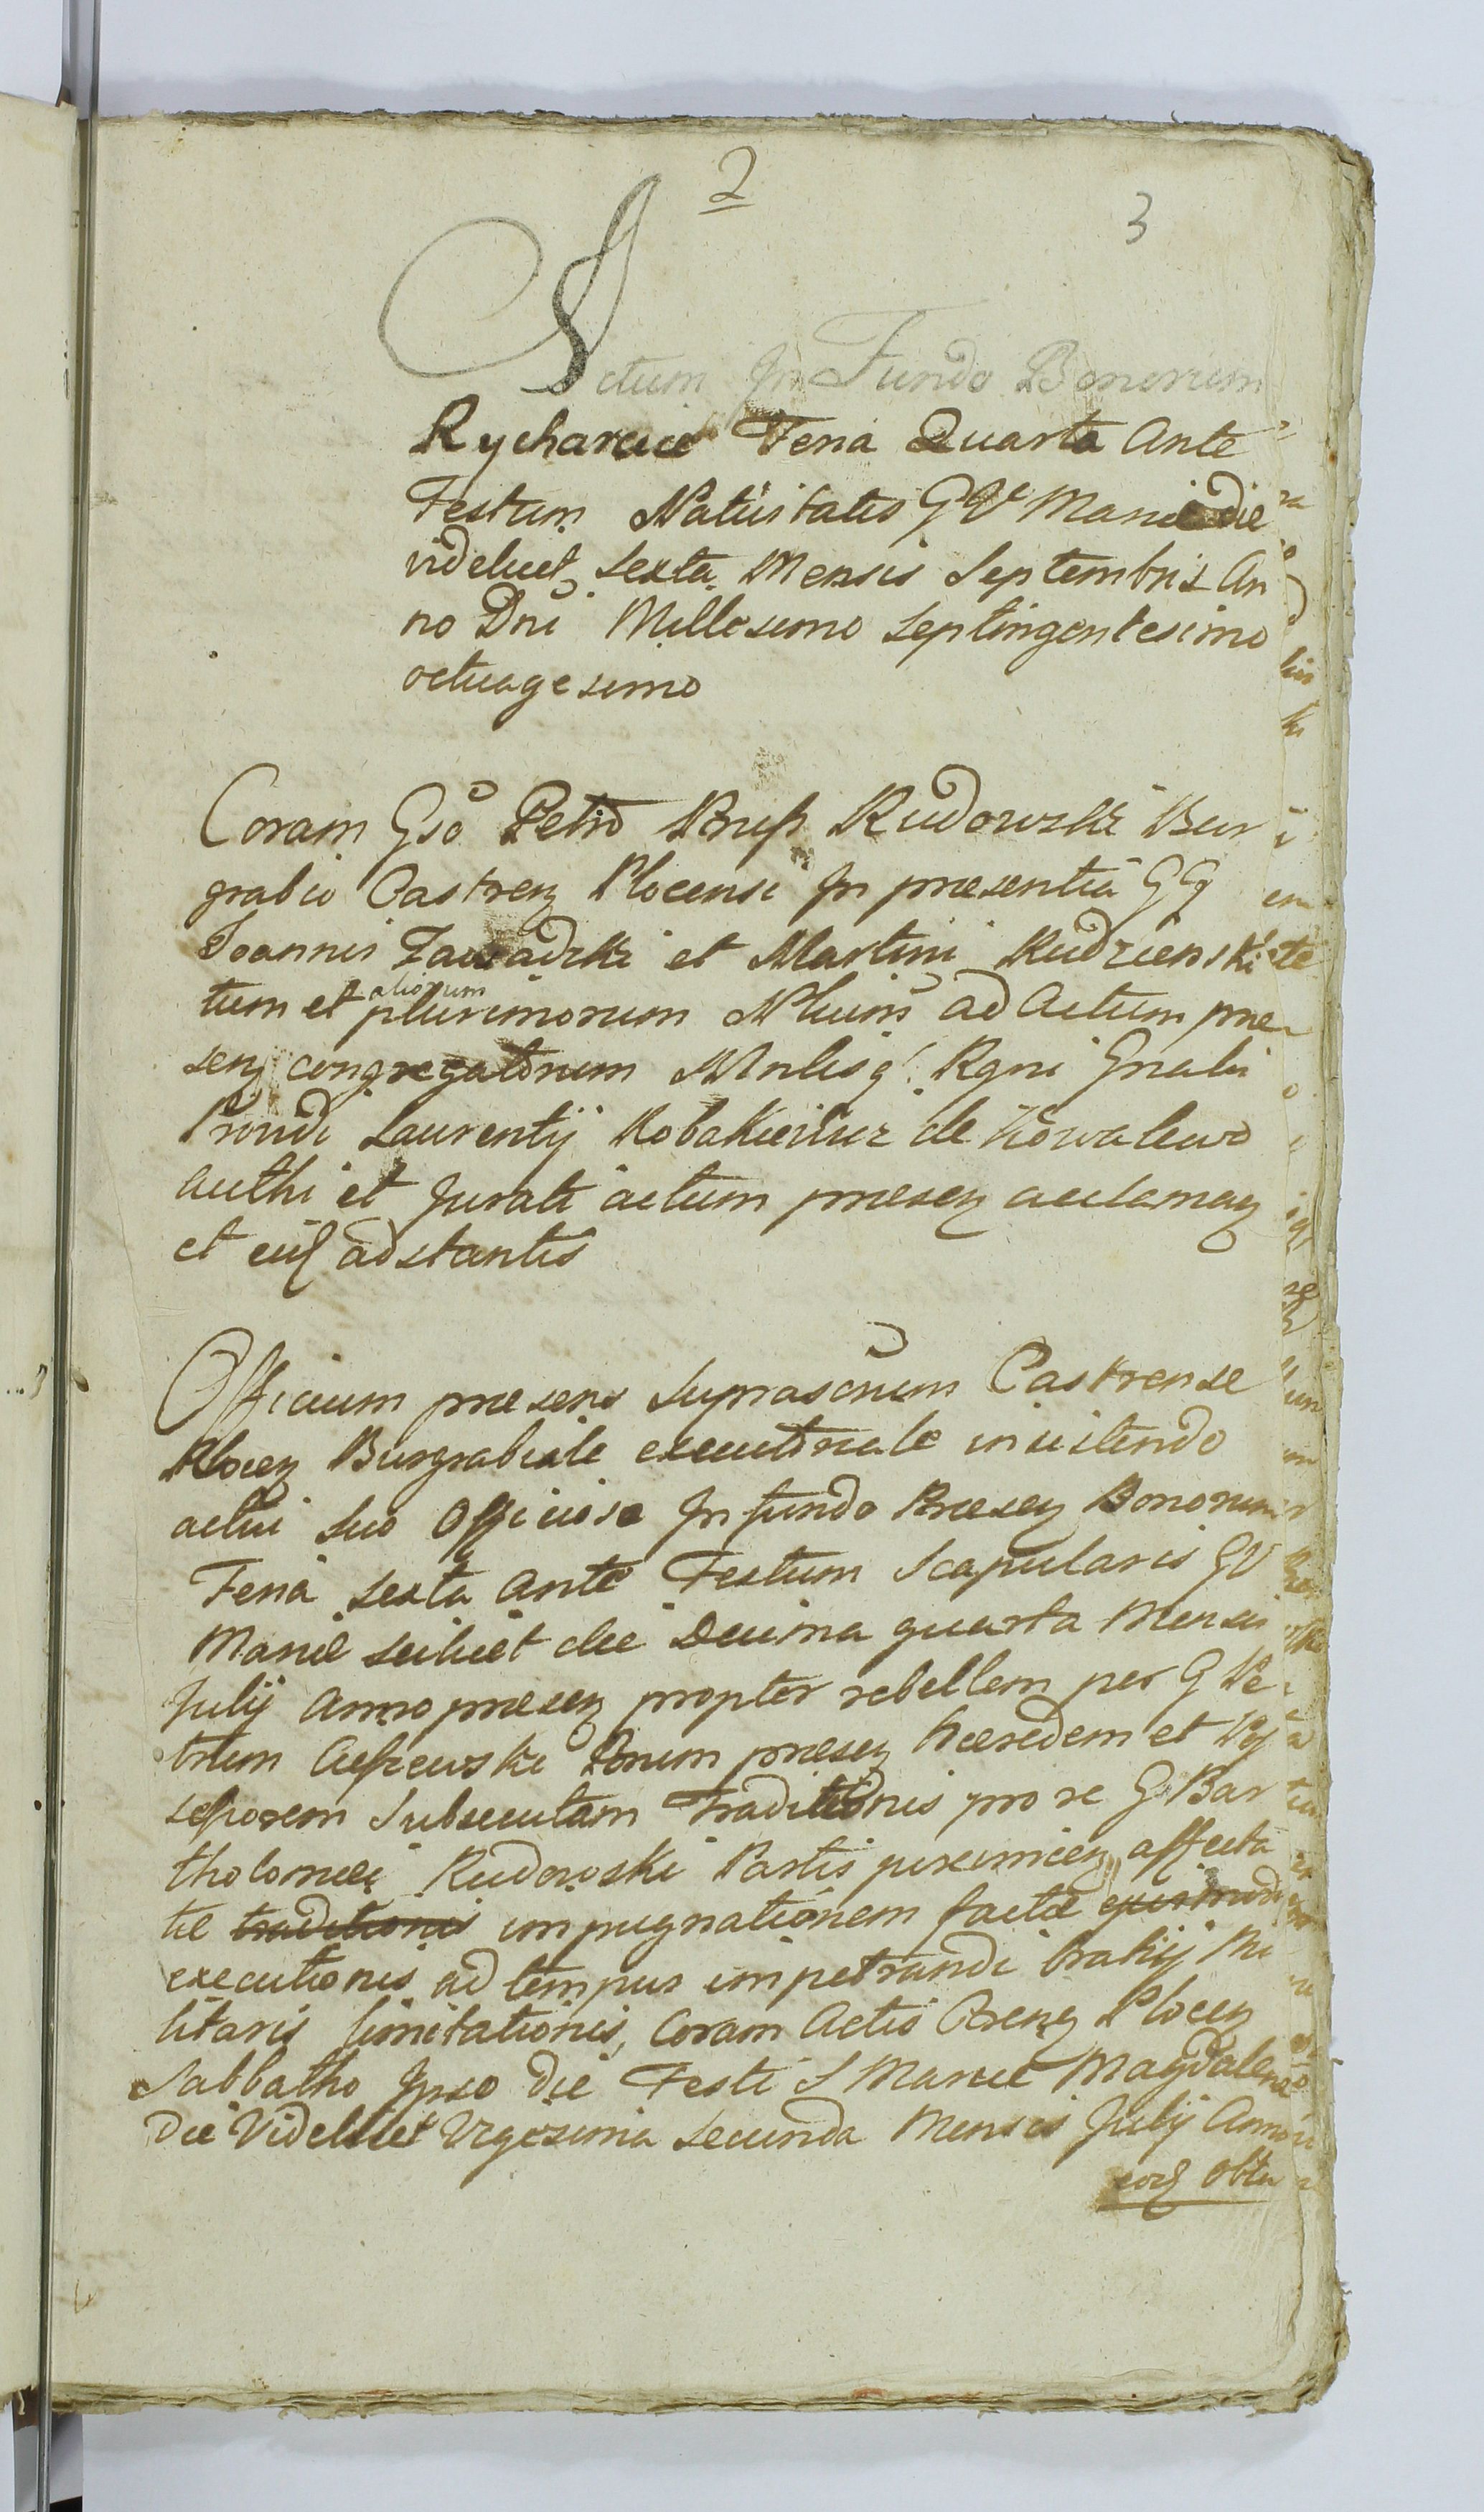 2
3
Actum In Fundo Bonorum
Rycharcice Feria Quarta Ante
Festum Natiuitatis G V Mariæ die
videlicet sexta Mensis Septembris An
no Dni Millesimo septingentesimo
octuagesimo
Coram Gso Petro Prus Rudowski Bur
grabio Castren Plocensi In præsentia GG
Joannis Zawadzki et Martini Rudzienski te
tum et aliorum plurimorum Nbiliũ ad Actum præ
sen congregatorum Mnlisq Rgni Gnalis
Prouidi Laurentij Kobakiewicz de Kowalewo
authi et Jurati actum præsen acclaman
et eid adstantis
Officium præsens suprascrium Castrense
Plocen Burgrabiale executoriale inuitendo
actui suo Officiose In fundo Præsen Bonorum
Feria sexta Ante Festum Scapularis G V
Mariæ scilicet die Decima quarta Mensis
Julij Anno præsen propter rebellem per G Pe
trum Ciszewski Bonum præsen hæredem et Pos
sessorem subsecutam Traditionis pro re G Bar
tholomei Rudowski Partis iurevincen affecta
tæ traditionis impugnationem factæ eiusmodi
executionis ad tempus impetrandi brahij Mi
litaris limitationis, Coram Actis Csens Plocen
Sabbatho Ipso die Festi S Mariæ Magdalenæ
die Videlicet Vigesima secunda Mensis Julij Anno
eod Obten